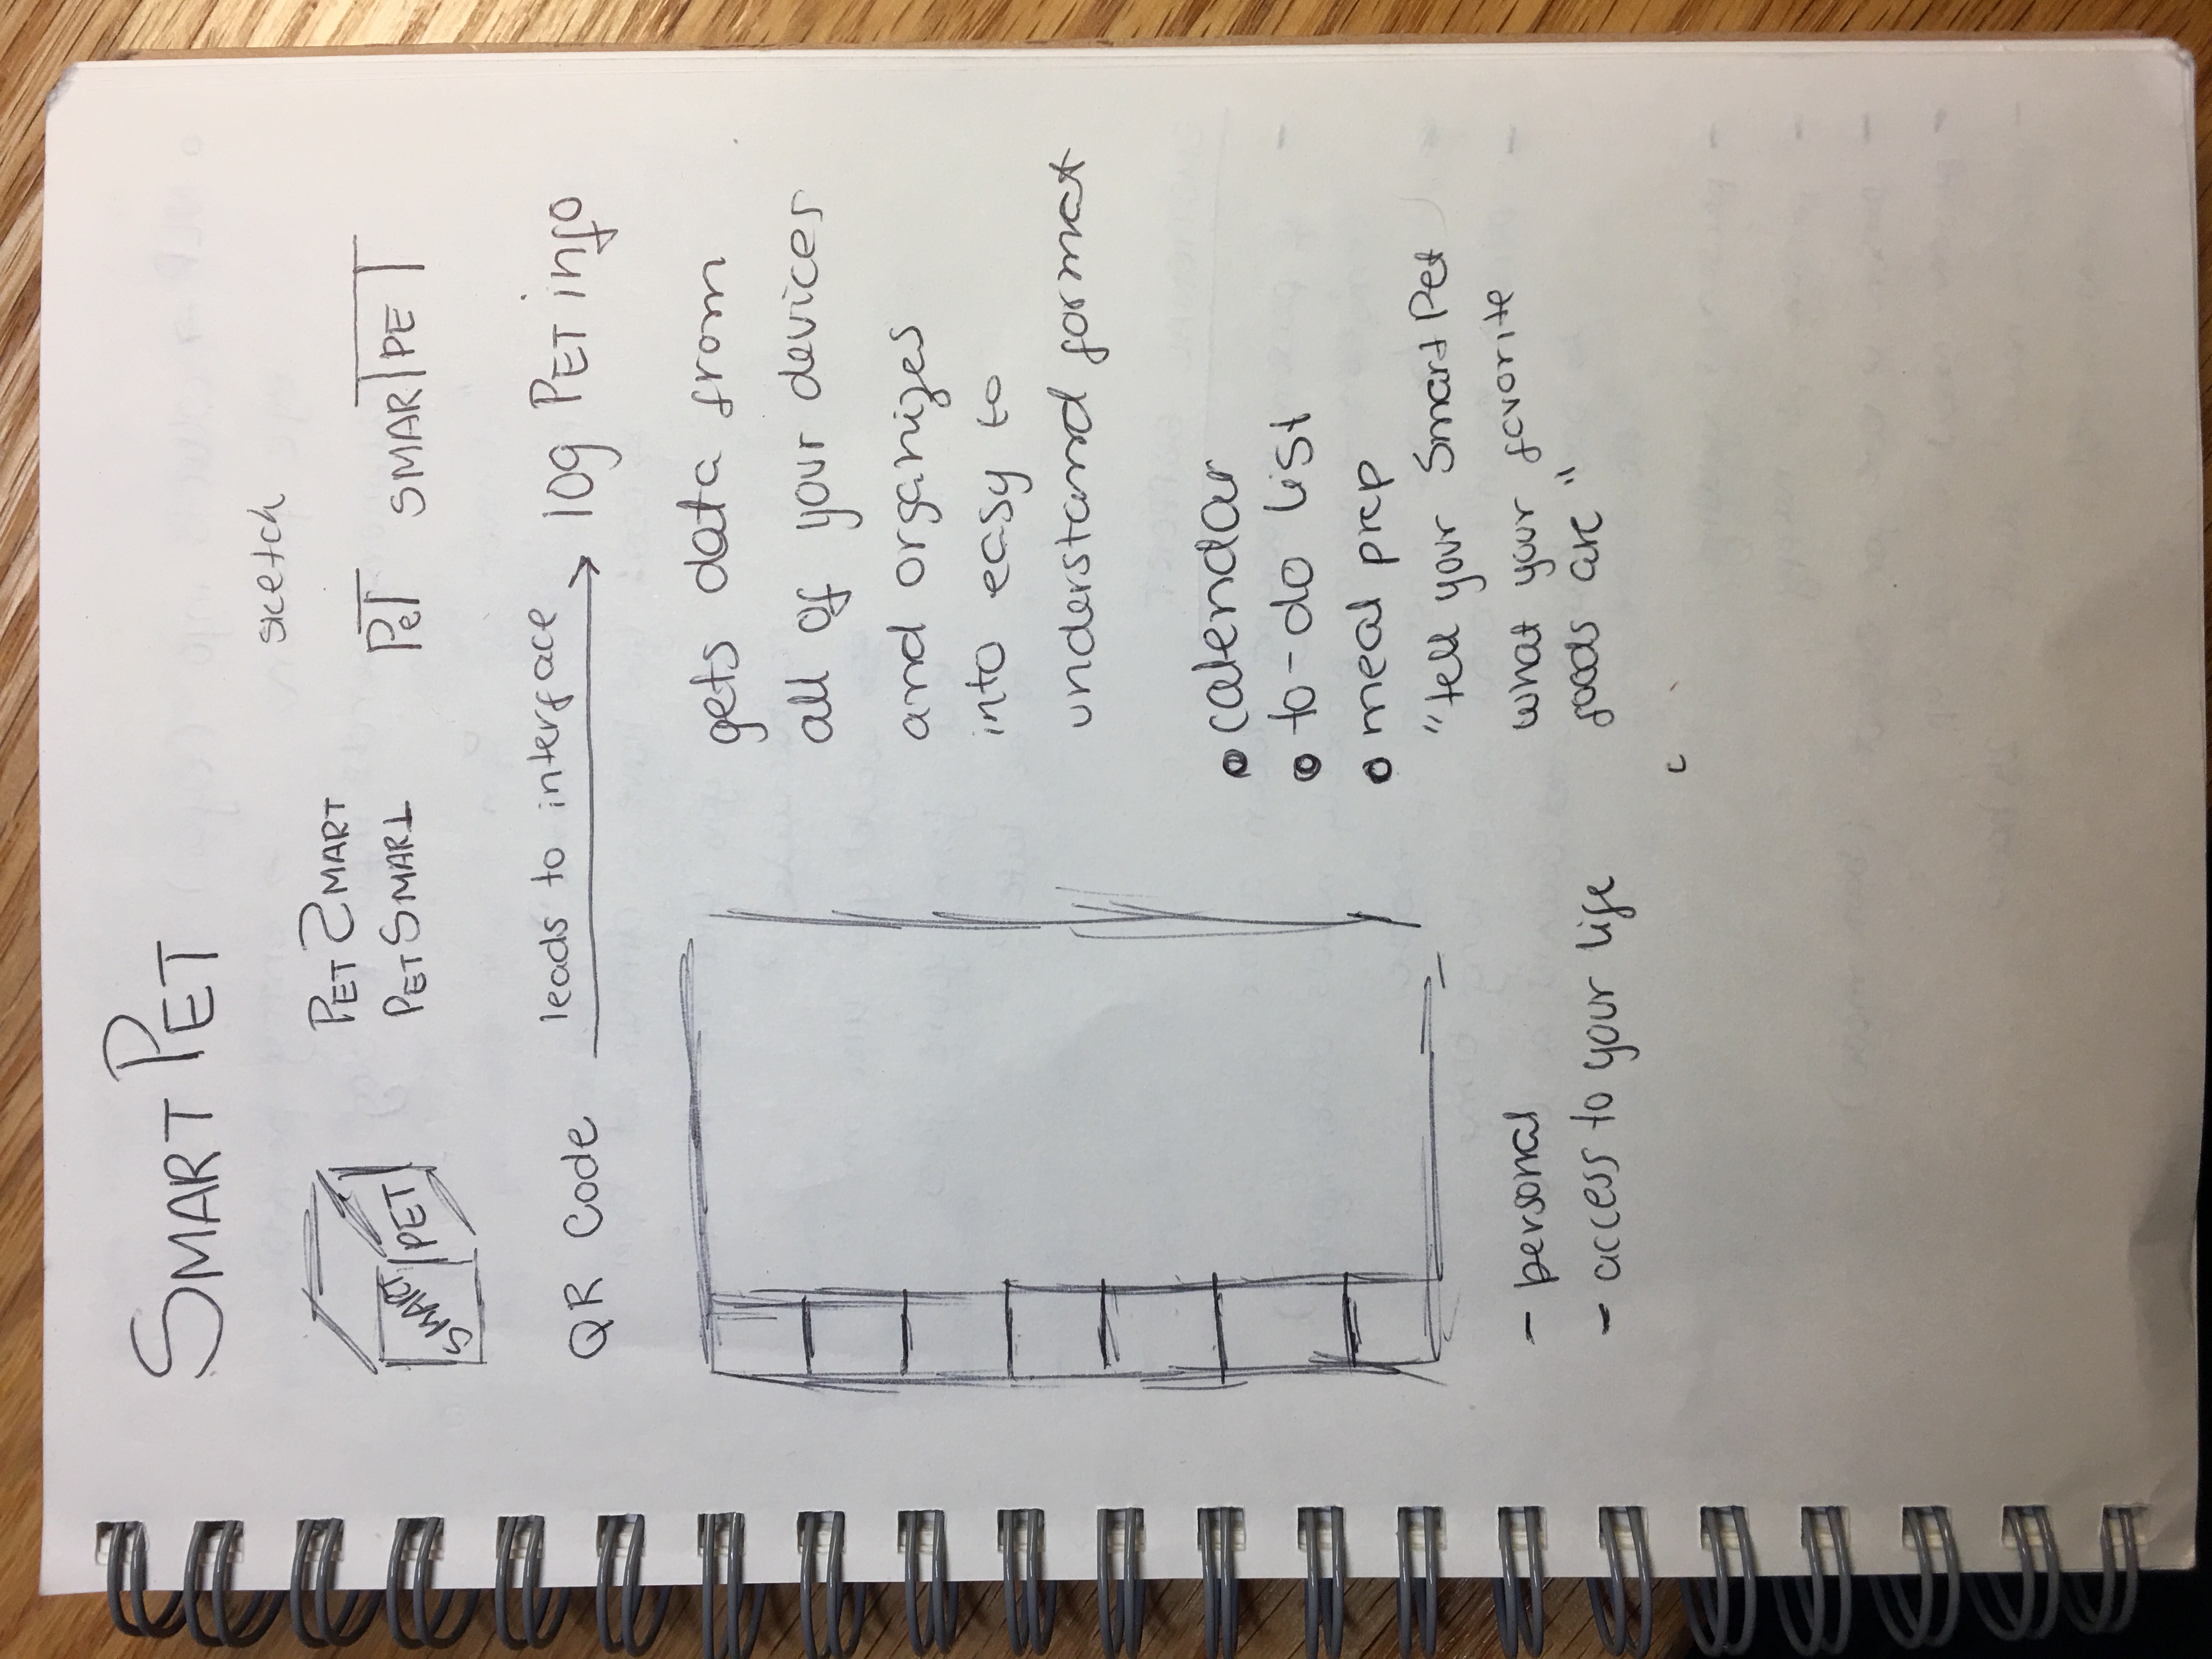 SMART PET
sketch
SMART PET
PET SMART
PET SMART
PeT SMARTPET
QR Code leads to interface log PET info
gets data from
all of your devices
and organizes
into easy to
understand format
calendar
to-do list
meal prep
"tell your Smart Pet
what your favorite
foods are"
- personal
- access to your life
EMOTIONAL SUPPORT